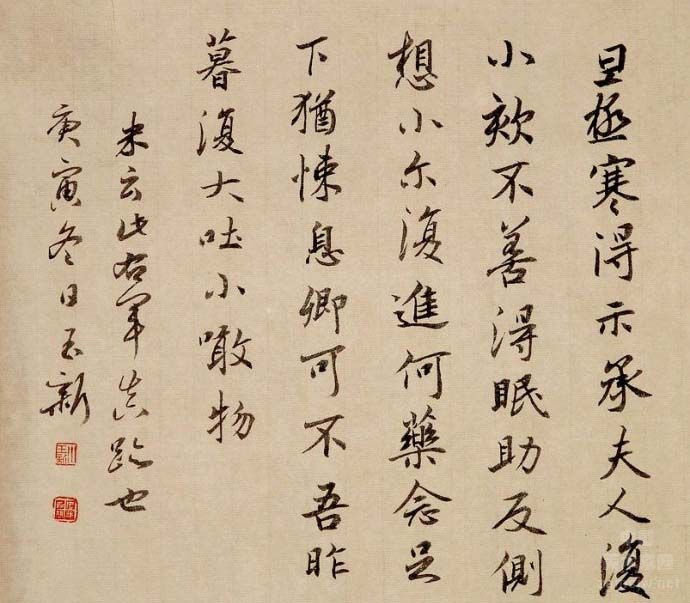 旦極寒得示承夫人復
小欬不善得眠助反側
想小尔復進何藥念足
下猶悚息卿可不吾昨
暮復大吐小噉物
米云此右軍真跡也
庚寅冬日玉新